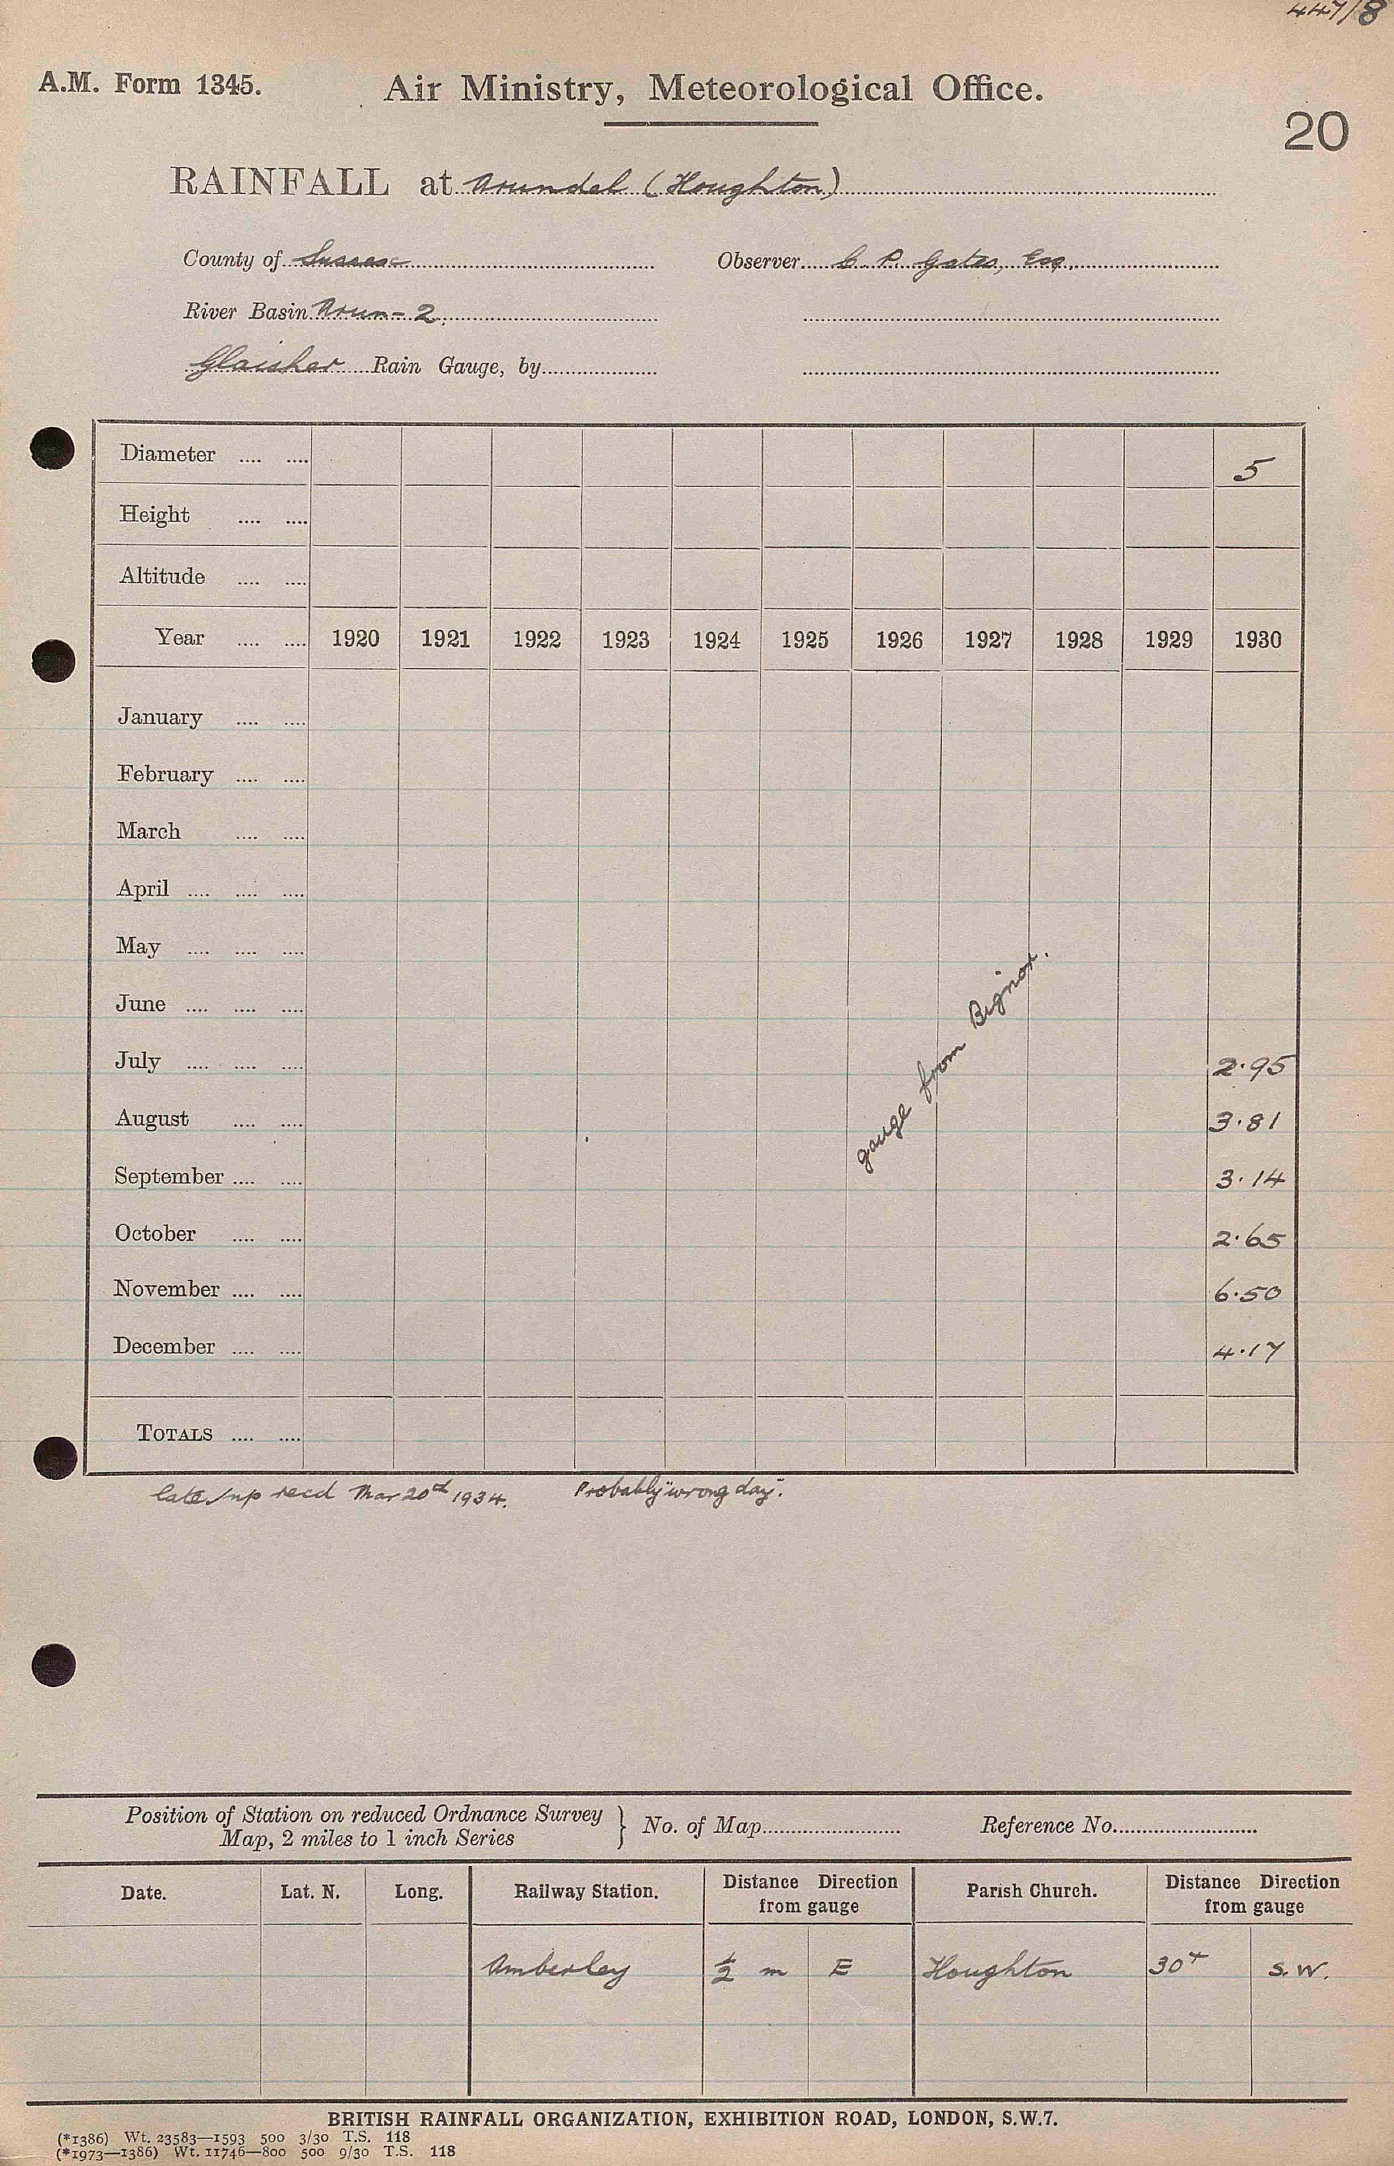 447/8
A.M. Form 1345. Air Ministry, Meteorological Office.
20
RAINFALL at Arundel (Houghton)
County of Sussex Observer C. P. Gates, Esq.
River Basin Arun - 2.
Glaisher Rain Gauge, by
Diameter .... .... 5
Height .... ....
Altitude .... ....
Year .... .... 1920 1921 1922 1923 1924 1925 1926 1927 1928 1929 1930
January .... ....
February .... ....
March .... ....
April .... .... ....
May .... .... ....
June .... .... ....
July .... .... .... 2.95
August .... .... 3.81
September .... .... 3.14
October .... .... 2.65
November .... .... 6.50
December .... .... 4.17
gauge from Bignor.
TOTALS .... ....
late recd Mar 20th 1934. Probably "wrong day".
Position of Station on reduced Ordnance Survey
Map, 2 miles to 1 inch Series } No. of Map Reference No.
Date. Lat. N. Long. Railway Station. Distance Direction from gauge Parish Church. Distance Direction from gauge
Amberley 1/2 m E Houghton 30 S.W.
BRITISH RAINFALL ORGANIZATION, EXHIBITION ROAD, LONDON, S.W.7.
(*1386) Wt. 23583—1593 500 3/30 T.S. 118
(*1973—1386) Wt. 11746—800 500 9/30 T.S. 118